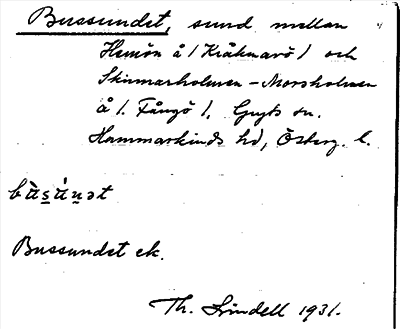 Bussundet, sund mellan
Hemön å / Kråkmarö / och
Skinnarholmen - Morsholmen
å /. Fångö /. Gryts sn.
Hammarkinds hd, Österg. l.
Bussundet ek.
Th. Lindell 1931.